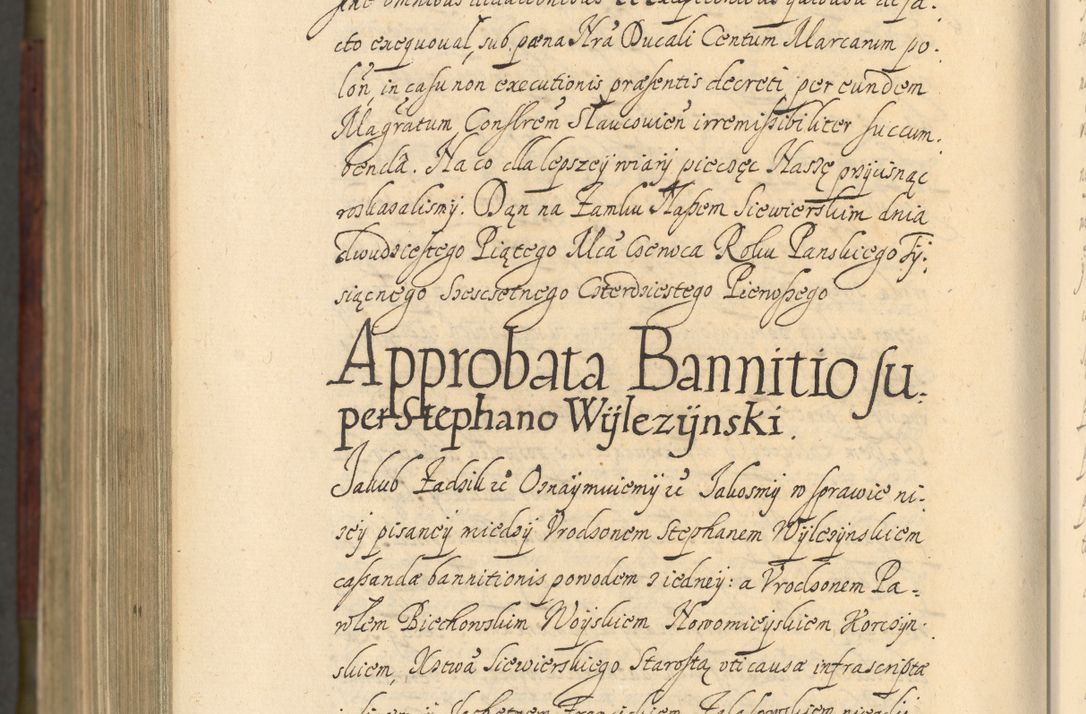 cto exequoual, sub pæna Nrã Ducali Centum Marcarum po-
lon, in casu non executionis præsentis decreti per eundem
Magr̃atum Conslrẽm Slaucouiẽn irremissibiliter succum-
benda. Na co dla lepszeÿ wiarÿ pieczęc Naszę przÿcisnąc
roskazalismÿ. Dąn na Zamku Naszem Siewierskim dnia
dwudziestego Piątego Mca Czerwca Roku Panskiego Tÿ-
siącnego Szescsetnego Czterdziestego Pierwszego
Approbata Bannitio su-
per Stephano Wÿlezÿnski.
Jakub Zadzik etc Oznaymuiemÿ iż Jakosmÿ w sprawie ni-
zeÿ pisaneÿ miedzÿ Vrodzonem Stephanem Wÿlezÿnskiem
cassandæ bannitionis powodem z iedneÿ: a Vrodzonem Pa-
wlem Biechowskim Woÿskiem Nowomieÿskiem Korczÿn-
skiem, Xstwa Siewierskiego Starostą vti causæ infrascriptæ